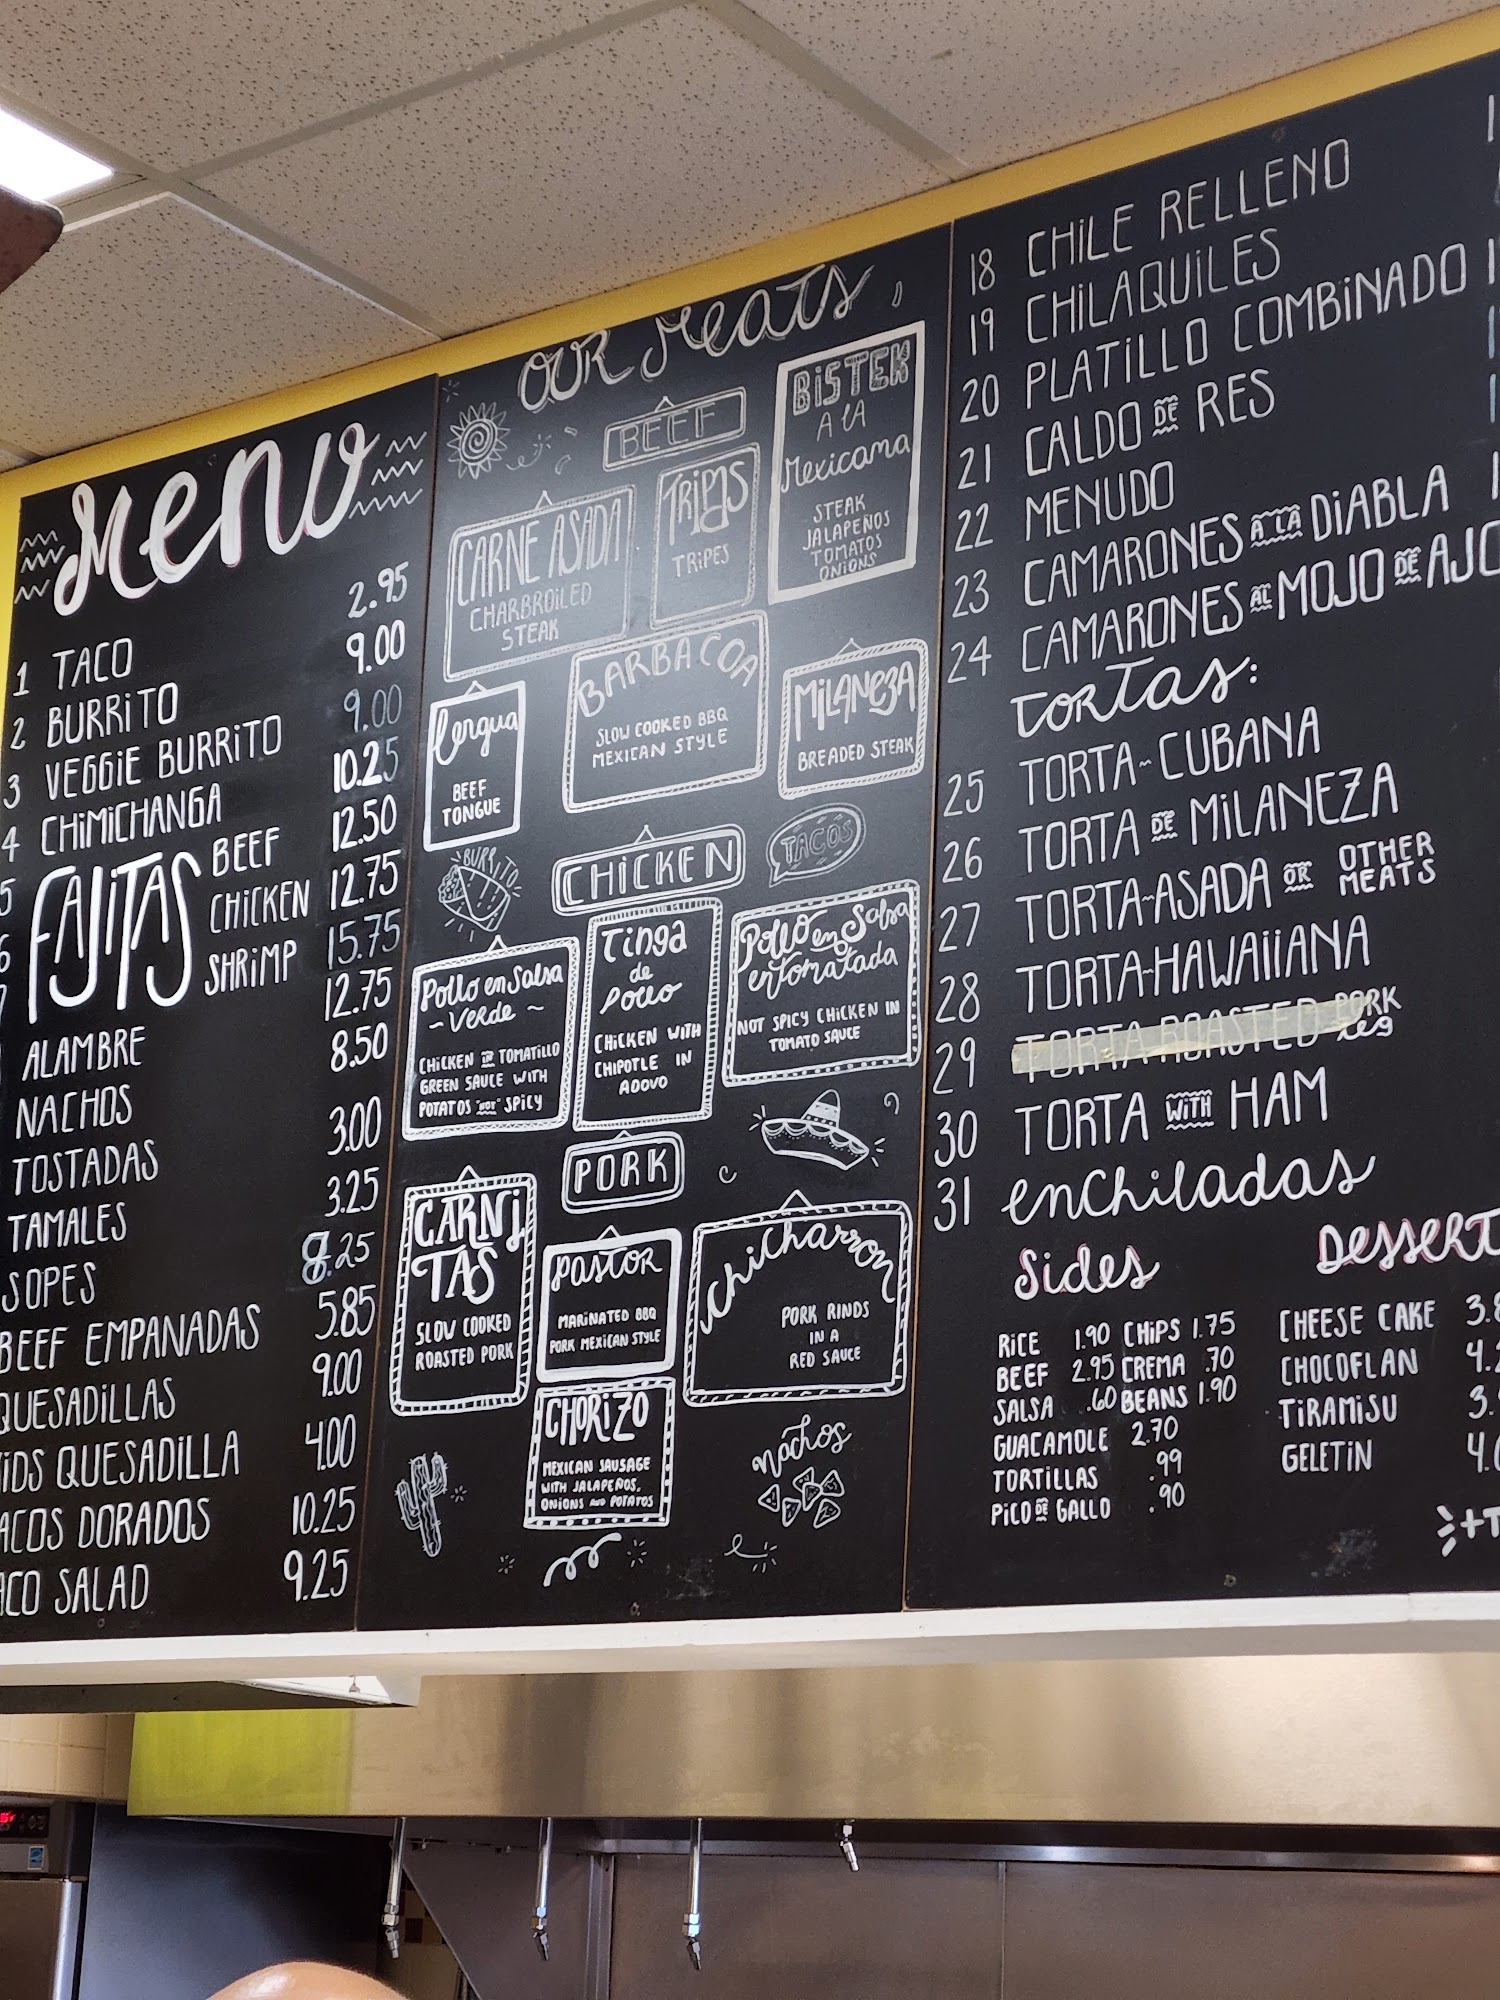 Menu
1 TACO 2.95
2 BURRITO 9.00
3 VEGGIE BURRITO 9.00
4 CHIMICHANGA 10.25
5 FAJITAS BEEF 12.50
6 CHICKEN 12.75
7 SHRIMP 15.75
ALAMBRE 12.75
NACHOS 8.50
TOSTADAS 3.00
TAMALES 3.25
SOPES 8.25
BEEF EMPANADAS 5.85
QUESADILLAS 9.00
KIDS QUESADILLA 4.00
TACOS DORADOS 10.25
TACO SALAD 9.25
OUR Meats
BEEF
CARNE ASADA
CHARBROILED
STEAK
TRIPAS
TRIPES
BISTEK
A LA
Mexicana
STEAK
JALAPEÑOS
TOMATOS
ONIONS
lengua
BEEF
TONGUE
BARBACOA
SLOW COOKED BBQ
MEXICAN STYLE
MILANEZA
BREADED STEAK
BURRITO
CHICKEN
TACOS
Pollo en Salsa
~ Verde ~
CHICKEN IN TOMATILLO
GREEN SAUCE WITH
POTATOS "NOT" SPICY
Tinga
de
Pollo
CHICKEN WITH
CHIPOTLE IN
ADOVO
Pollo en Salsa
entomatada
NOT SPICY CHICKEN IN
TOMATO SAUCE
PORK
CARNITAS
SLOW COOKED
ROASTED PORK
Pastor
MARINATED BBQ
PORK MEXICAN STYLE
Chicharron
PORK RINDS
IN A
RED SAUCE
CHORIZO
MEXICAN SAUSAGE
WITH JALAPEÑOS,
ONIONS AND POTATOS
Nachos
18 CHILE RELLENO
19 CHILAQUILES
20 PLATILLO COMBINADO
21 CALDO DE RES
22 MENUDO
23 CAMARONES A LA DIABLA
24 CAMARONES AL MOJO DE AJO
TORTAS:
25 TORTA-CUBANA
26 TORTA DE MILANEZA
27 TORTA-ASADA OR OTHER MEATS
28 TORTA-HAWAIIANA
29 TORTA ROASTED PORK leg
30 TORTA WITH HAM
31 enchiladas
Sides
RICE 1.90 CHIPS 1.75
BEEF 2.95 CREMA .70
SALSA .60 BEANS 1.90
GUACAMOLE 2.70
TORTILLAS .99
PICO DE GALLO .90
DESSERT
CHEESE CAKE 3.
CHOCOFLAN 4.
TIRAMISU 3.
GELETIN 4.